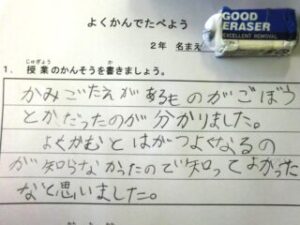 よくかんでたべよう
２年　名まえ
GOOD
ERASER
EXCELLENT REMOVAL
1. 授業のかんそうを書きましょう。
じゅぎょう
か
かみごたえがあるものがごぼう
とかだったのが分かりました。
よくかむとはがつよくなるの
が知らなかったので知ってよかった
なと思いました。